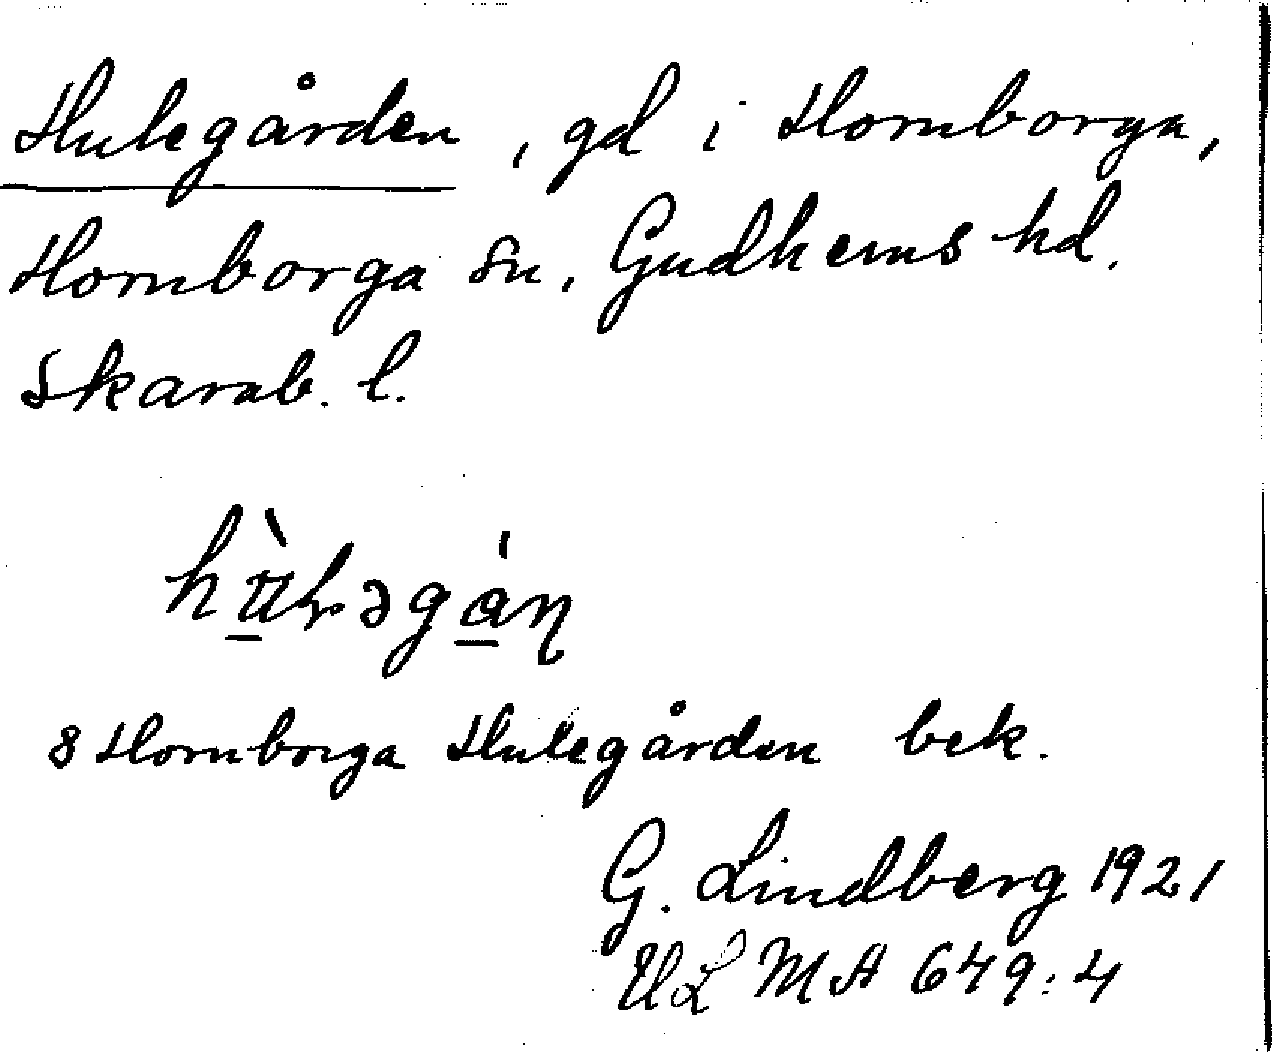 Hulegården, gd i Hornborga,
Hornborga sn, Gudhems hd.
Skarab. l.
8 Hornborga Hulegården bek.
G. Lindberg 1921
ULMA 649:4